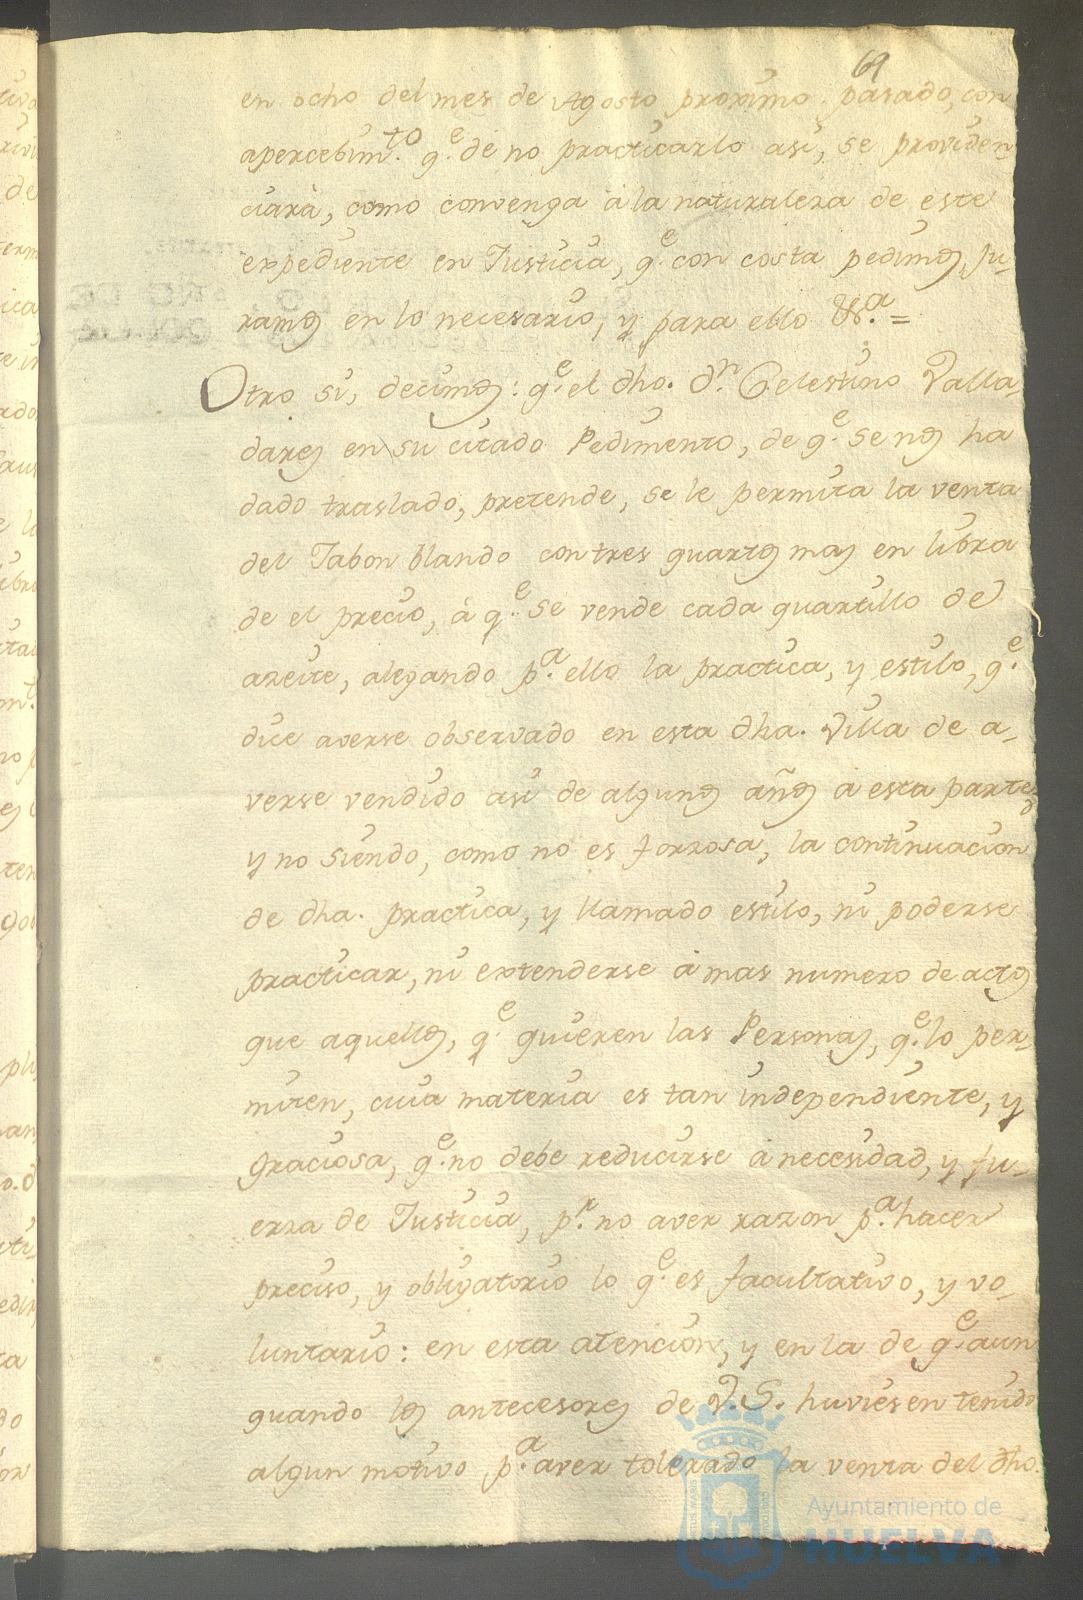 69
en ocho del mes de Agosto proximo pasado, con
apercebim.to q.e de no practicarlo asi, se providen
ciarà, como convenga à la naturaleza de este
expediente en Justicia, q.e con costa pedimos, Ju-
ramos en lo necesario, y para ello &.a =
Otro si, decimos: q.e el dho. d.n Celestino Valla-
dares en su citado Pedimento, de q.e se nos ha
dado traslado, pretende, se le permita la venta
del Jabon blando con tres quartos mas en libra
de el precio, à q.e se vende cada quartillo de
azeite, alegando p.a ello la practica, y estilo, q.e
dice averse observado en esta dha. Villa de a-
verse vendido asi de algunos años à esta parte,
y no siendo, como no es forzosa, la continuacion
de dha. practica, y llamado estilo, ni poderse
practicar, ni extenderse à mas numero de actos
que aquellos, q.e quieren las Personas, q.e lo per-
miten, cuia materia es tan independiente, y
graciosa, q.e no debe reducirse à necesidad, y fu-
erza de Justicia, p.r no aver razon p.a hacer
preciso, y obligatorio lo q.e es facultativo, y vo-
luntario: en esta atencion, y en la de q.e aun
quando los antecesores de V.S. huviesen tenido
algun motivo p.a aver tolerado la venta del dho.
Ayuntamiento de
HUELVA